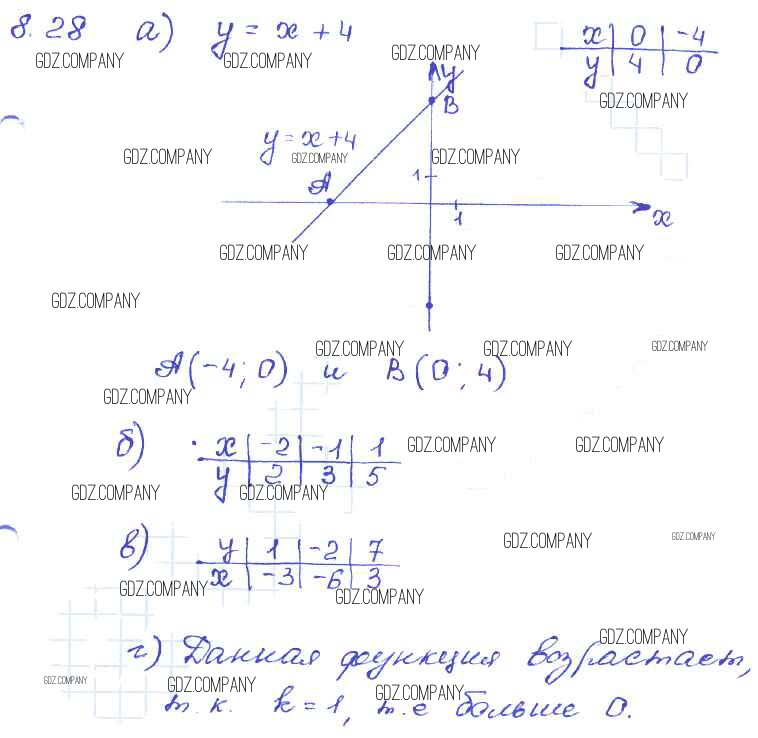 8.28 а) y = x + 4
x | 0 | -4
y | 4 | 0
GDZ.COMPANY GDZ.COMPANY GDZ.COMPANY
y
B
GDZ.COMPANY
y = x + 4
GDZ.COMPANY GDZ.COMPANY GDZ.COMPANY
A
1
1
x
GDZ.COMPANY GDZ.COMPANY GDZ.COMPANY
GDZ.COMPANY
GDZ.COMPANY GDZ.COMPANY GDZ.COMPANY
A(-4; 0) и B(0; 4)
GDZ.COMPANY
б) x | -2 | -1 | 1
y | 2 | 3 | 5
GDZ.COMPANY GDZ.COMPANY
GDZ.COMPANY GDZ.COMPANY
GDZ.COMPANY GDZ.COMPANY
в) y | 1 | -2 | 7
x | -3 | -6 | 3
GDZ.COMPANY GDZ.COMPANY
GDZ.COMPANY
г) Данная функция возрастает,
GDZ.COMPANY GDZ.COMPANY GDZ.COMPANY
т.к. k = 1, т.е больше 0.